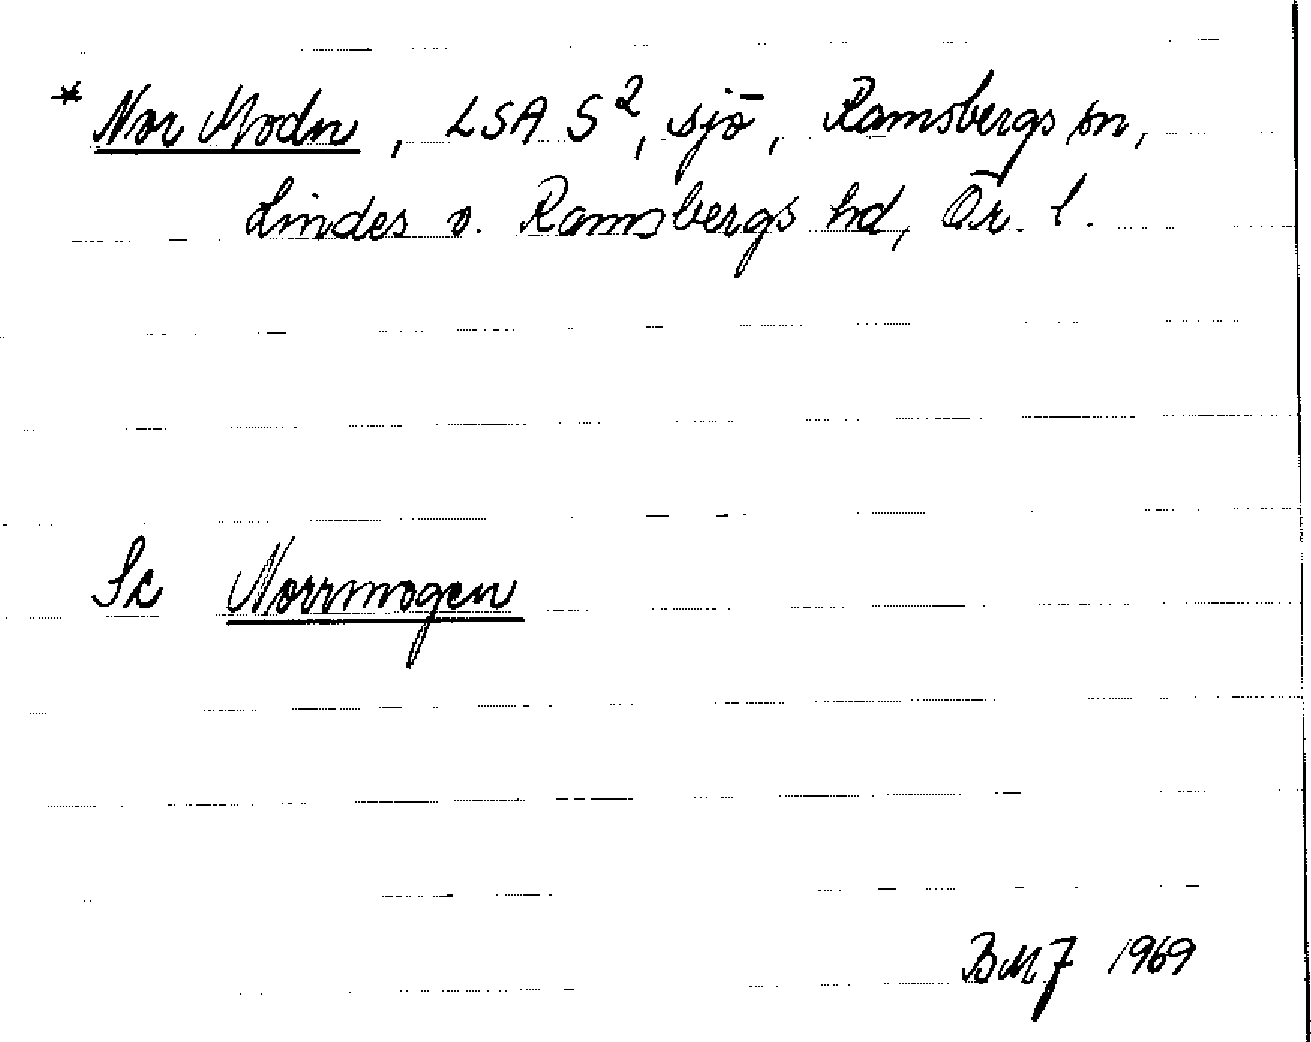 * Nor Modn, LSA S², sjö, Ramsbergs sn,
Lindes o. Ramsbergs hd, Ör. l.
Se Norrmogen
BMJ 1969